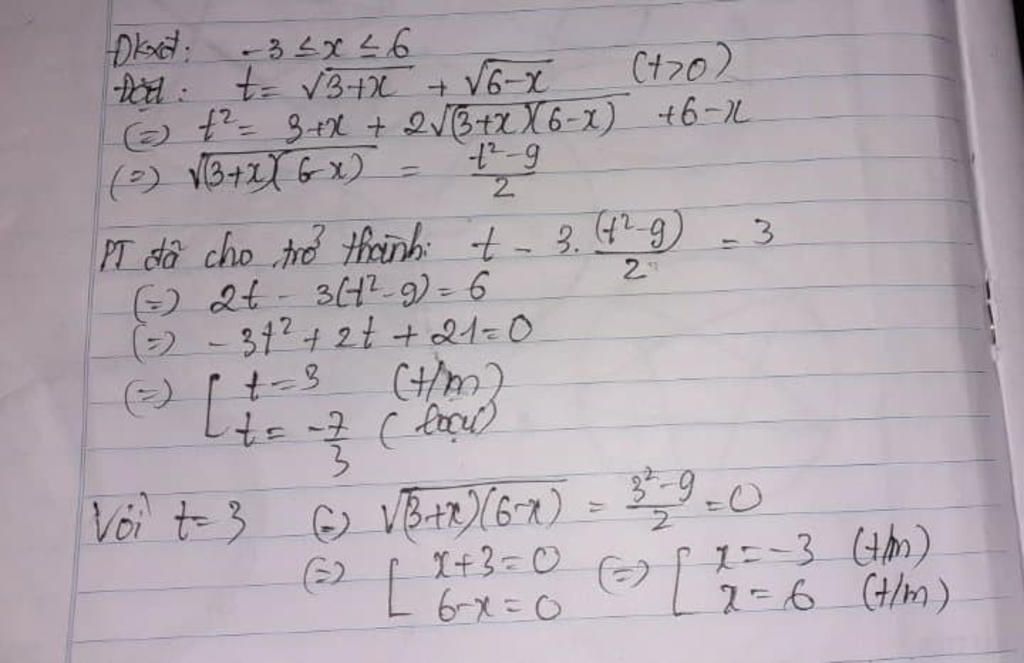 Đkxđ: -3 ≤ x ≤ 6
Đặt: t = √(3+x) + √(6-x) (t>0)
(=) t² = 3+x + 2√((3+x)(6-x)) + 6-x
(=) √((3+x)(6-x)) = (t²-9)/2
PT đã cho trở thành: t - 3.(t²-9)/2 = 3
(=) 2t - 3(t²-9) = 6
(=) -3t² + 2t + 21 = 0
(=) [ t = 3 (t/m)
t = -7/3 (loại)
Với t = 3 (=) √((3+x)(6-x)) = (3²-9)/2 = 0
(=) [ x+3=0 (=) [ x = -3 (t/m)
6-x=0 x = 6 (t/m)